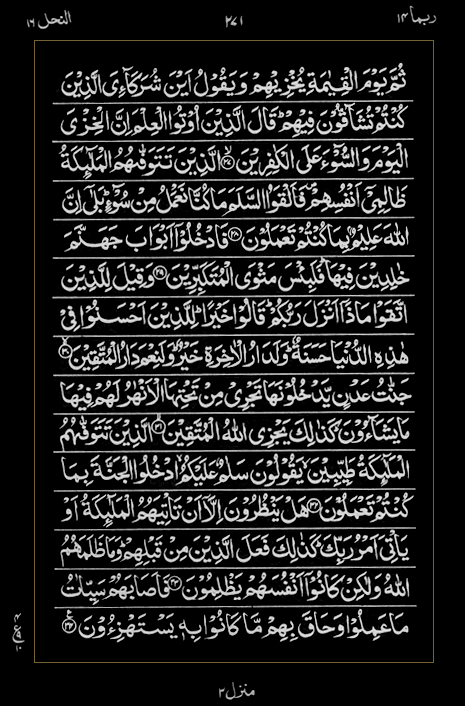 ربما ١٤
٢٧١
النحل ١٦
ثُمَّ يَوْمَ الْقِيٰمَةِ يُخْزِيْهِمْ وَيَقُوْلُ اَيْنَ شُرَكَآءِىَ الَّذِيْنَ
كُنْتُمْ تُشَآقُّوْنَ فِيْهِمْ ؕ قَالَ الَّذِيْنَ اُوْتُوا الْعِلْمَ اِنَّ الْخِزْىَ
الْيَوْمَ وَالسُّوْٓءَ عَلَى الْكٰفِرِيْنَ ۙ‏﴿۲۷﴾ الَّذِيْنَ تَتَوَفّٰٮهُمُ الْمَلٰٓئِكَةُ
ظَالِمِىْۤ اَنْفُسِهِمْ ۖ فَاَلْقَوُا السَّلَمَ مَا كُنَّا نَعْمَلُ مِنْ سُوْٓءٍ ؕ بَلٰٓى اِنَّ
اللّٰهَ عَلِيْمٌۢ بِمَا كُنْتُمْ تَعْمَلُوْنَ ﴿۲۸﴾ فَادْخُلُوْۤا اَبْوَابَ جَهَنَّمَ
خٰلِدِيْنَ فِيْهَا ؕ فَلَبِئْسَ مَثْوَى الْمُتَكَبِّرِيْنَ ﴿۲۹﴾ وَقِيْلَ لِلَّذِيْنَ
اتَّقَوْا مَاذَاۤ اَنْزَلَ رَبُّكُمْ ؕ قَالُوْا خَيْرًا ؕ لِّلَّذِيْنَ اَحْسَنُوْا فِىْ
هٰذِهِ الدُّنْيَا حَسَنَةٌ ؕ وَلَدَارُ الْاٰخِرَةِ خَيْرٌ ؕ وَلَنِعْمَ دَارُ الْمُتَّقِيْنَ ۙ‏﴿۳۰﴾
جَنّٰتُ عَدْنٍ يَّدْخُلُوْنَهَا تَجْرِىْ مِنْ تَحْتِهَا الْاَنْهٰرُ لَهُمْ فِيْهَا
مَا يَشَآءُوْنَ ؕ كَذٰلِكَ يَجْزِى اللّٰهُ الْمُتَّقِيْنَ ۙ‏﴿۳۱﴾ الَّذِيْنَ تَتَوَفّٰٮهُمُ
الْمَلٰٓئِكَةُ طَيِّبِيْنَ ۙ يَقُوْلُوْنَ سَلٰمٌ عَلَيْكُمُ ۙ ادْخُلُوا الْجَنَّةَ بِمَا
كُنْتُمْ تَعْمَلُوْنَ ﴿۳۲﴾ هَلْ يَنْظُرُوْنَ اِلَّاۤ اَنْ تَاْتِيَهُمُ الْمَلٰٓئِكَةُ اَوْ
يَاْتِىَ اَمْرُ رَبِّكَ ؕ كَذٰلِكَ فَعَلَ الَّذِيْنَ مِنْ قَبْلِهِمْ ؕ وَمَا ظَلَمَهُمُ
اللّٰهُ وَلٰكِنْ كَانُوْۤا اَنْفُسَهُمْ يَظْلِمُوْنَ ﴿۳۳﴾ فَاَصَابَهُمْ سَيِّاٰتُ
مَا عَمِلُوْا وَحَاقَ بِهِمْ مَّا كَانُوْا بِهٖ يَسْتَهْزِءُوْنَ ﴿۳۴﴾
منزل ٣